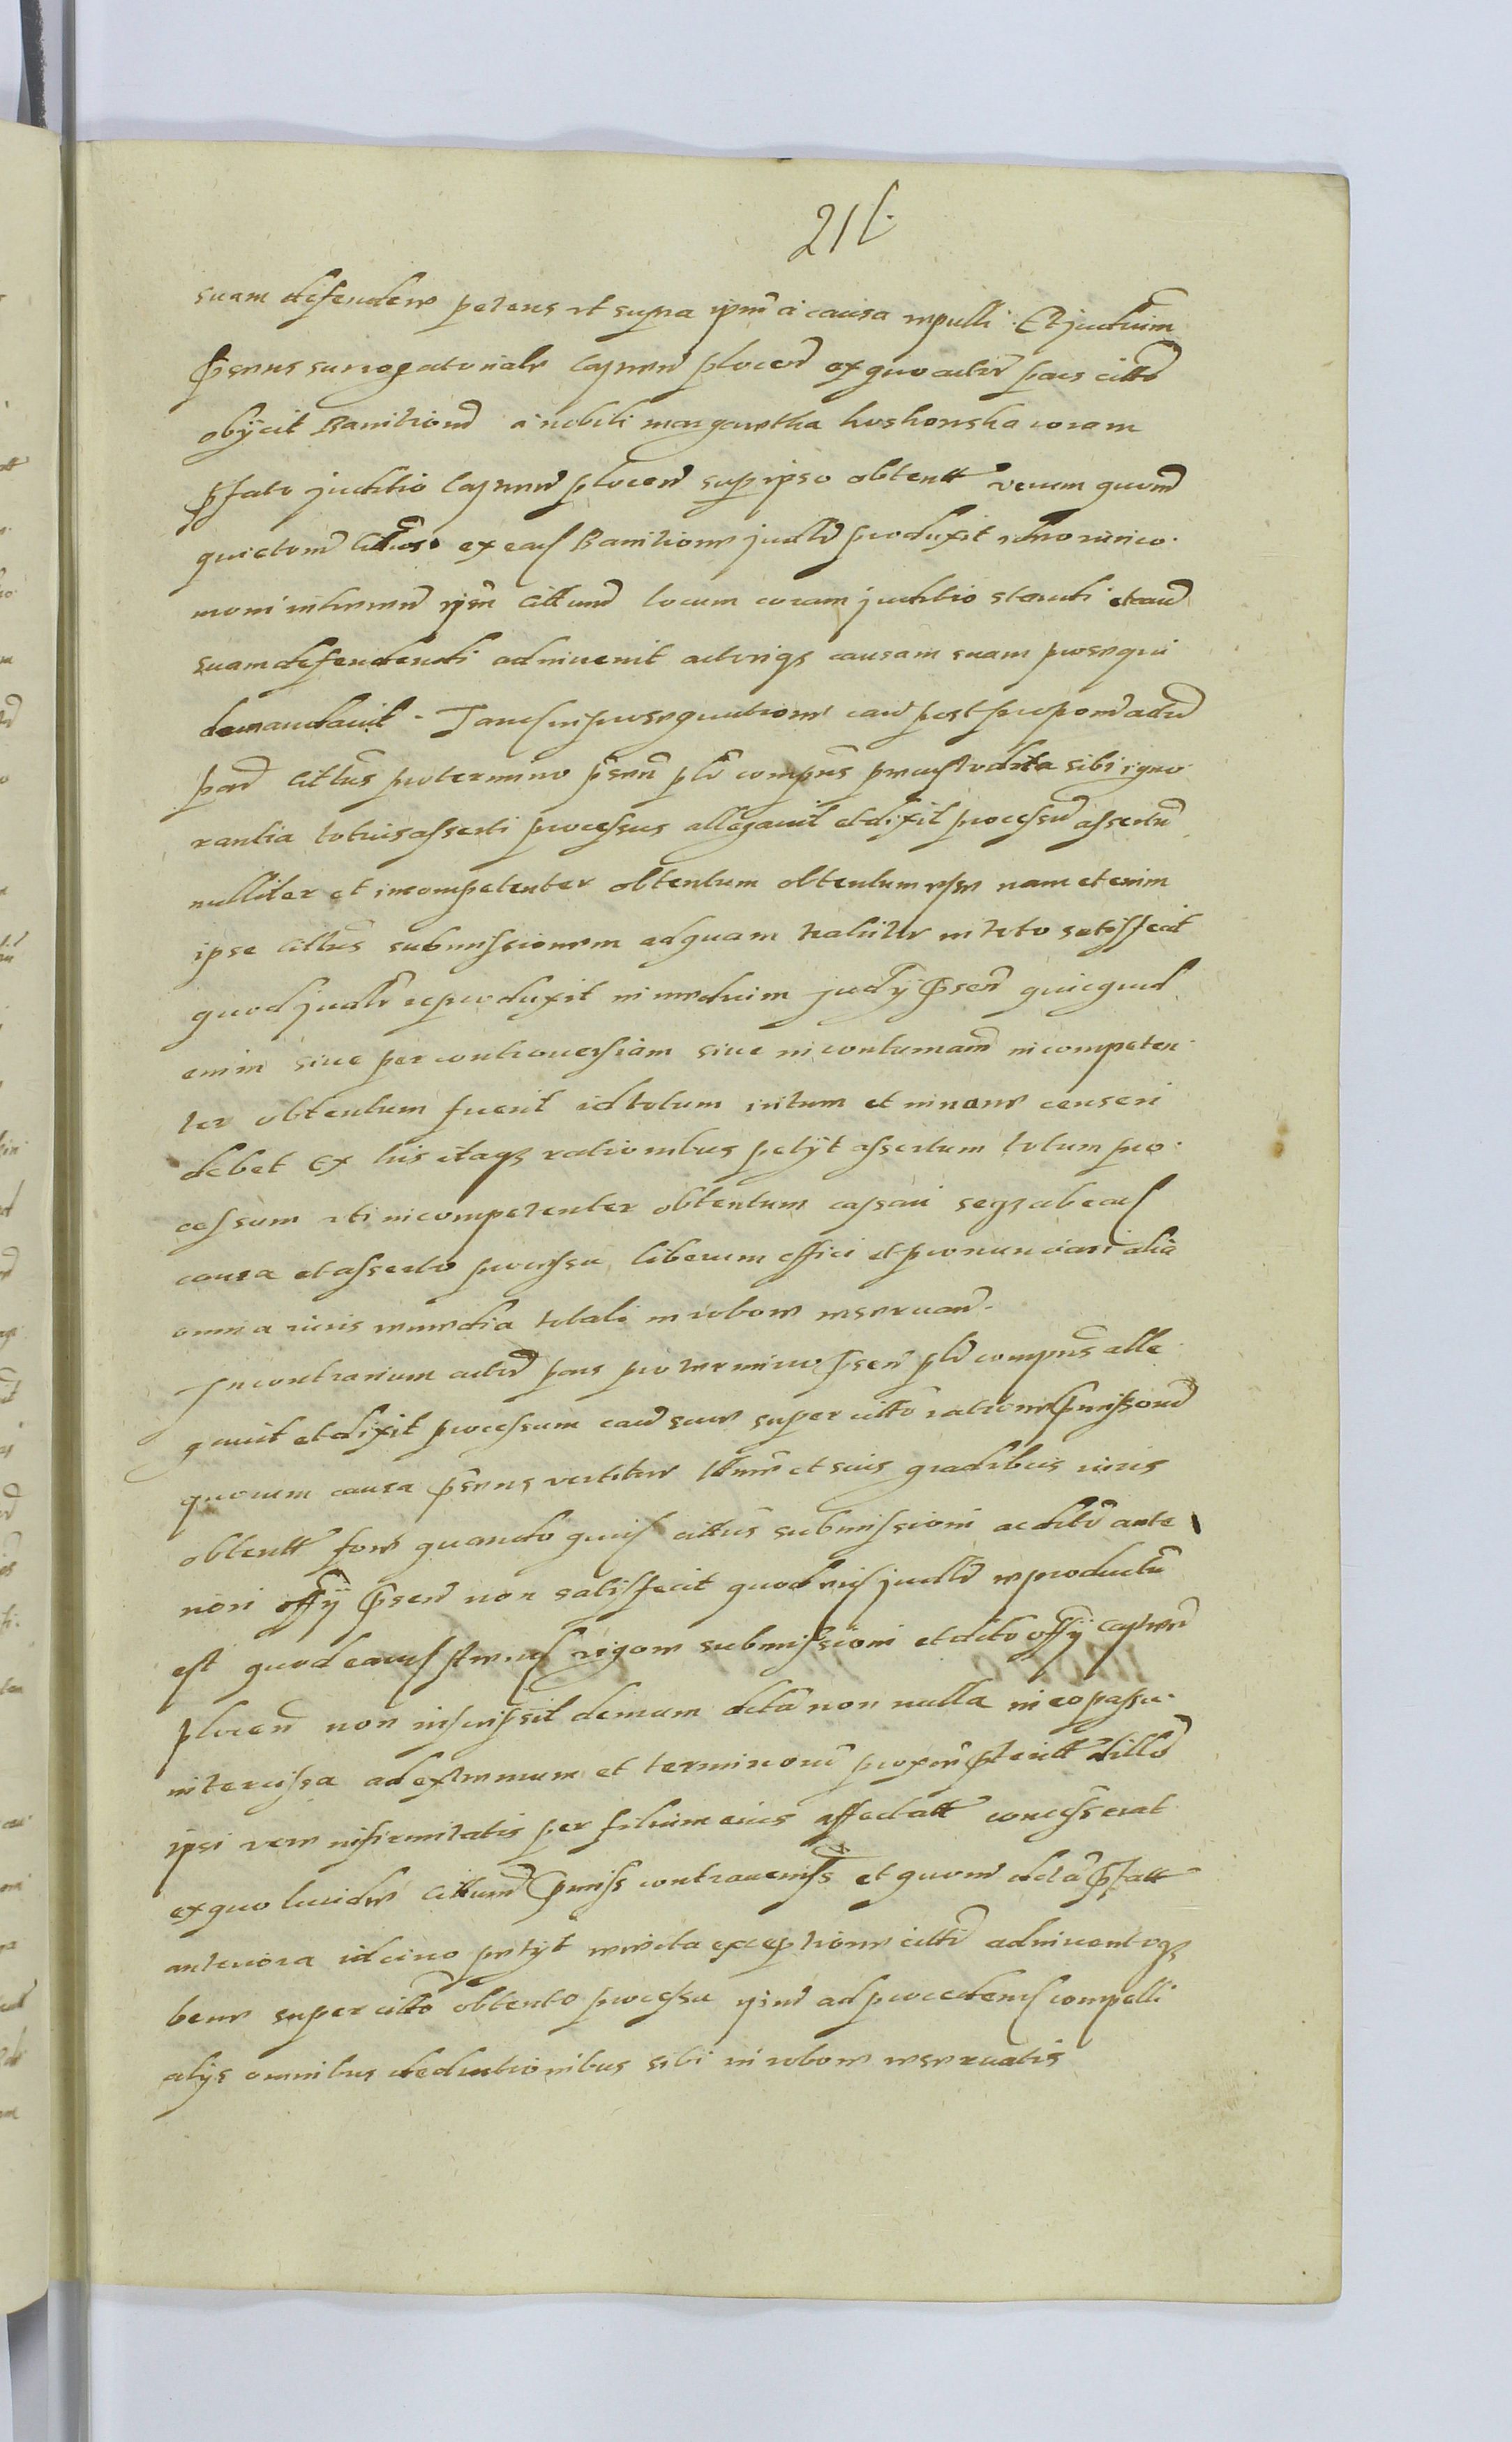 21
suam defendere petens ut supra ipm a causa repelli. Et judicium
pñs surrogatoriale Capnen plocen ex quo actor pars citto
obijcit Banitionem a nobili margaretha koskonska coram
pfato juditio Capnen plocen super ipso obtentt verum quoniam
quietom Cittus ex eaq Banitione judlr produxit ideo
ipsm Cittum locum coram juditio standi et cau
suam defendendi adinvenit actorique causam suam prosequi
demandavit. Tandem in prosequutione cau post propom actor
part Cittus pro termino psen plr compns sibi igno
rantia totius asserti processus allegavit et dixit processum assertum
nulliter et incompetenter obtentum obtentum esse nam etenim
ipse Cittus submissionem ad quam in toto satisfecit
quod judlr reproduxit in medium judij psen quicquid
enim sive per controversiam sive in contumam incompeten
ter obtentum fuerit id totum iritum et innane censeri
debet Ex his itaque rationibus petijt assertum totum pro
cessum uti incompetenter obtentum cassari seque ab eaq
causa et asserto processu liberum effici et pronunciari alia
omnia iuris remedia totali in robore reservan.
In contrarium actor pars pro termino psen plr compns alle
gavit et dixit processum cau sue super citto ratione pmissorum
quorum causa pñs vertitur ltime et suis gradibus iuris
obtentt fore quando quidem cittus submissioni actitt ante
riori offij psen non satisfecit quod judlr reproductum
est quod rigore submissioni et acto offij Capnen
plocen non demum acta non nulla in eo passu
intercisa ad extremum et terminorum proxm dillo
ipsi vere infirmitatis per filium eius affectatt concesserat
ex quo lucide Cittum pmiss contravenisse et quom acta pfatt
anteriora idcirco petijt reiecta exceptione citti adinventoque
bene super citto obtento processu ipm ad procedend compelli
alijs omnibus deductionibus sibi in robore reservatis